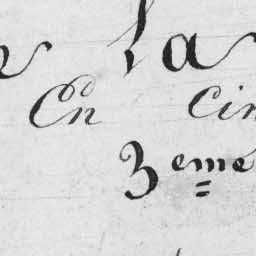 la
En Cin
3eme